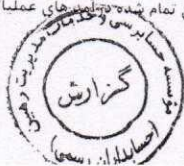 تمام شده درآمدهای عملیا
مؤسسه حسابرسی و خدمات مدیریت رهبین
گزارش
(حسابداران رسمی)